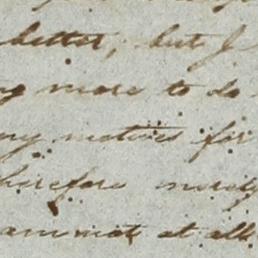 better, but I
more to do
my motives for
therefore merely
am not at all